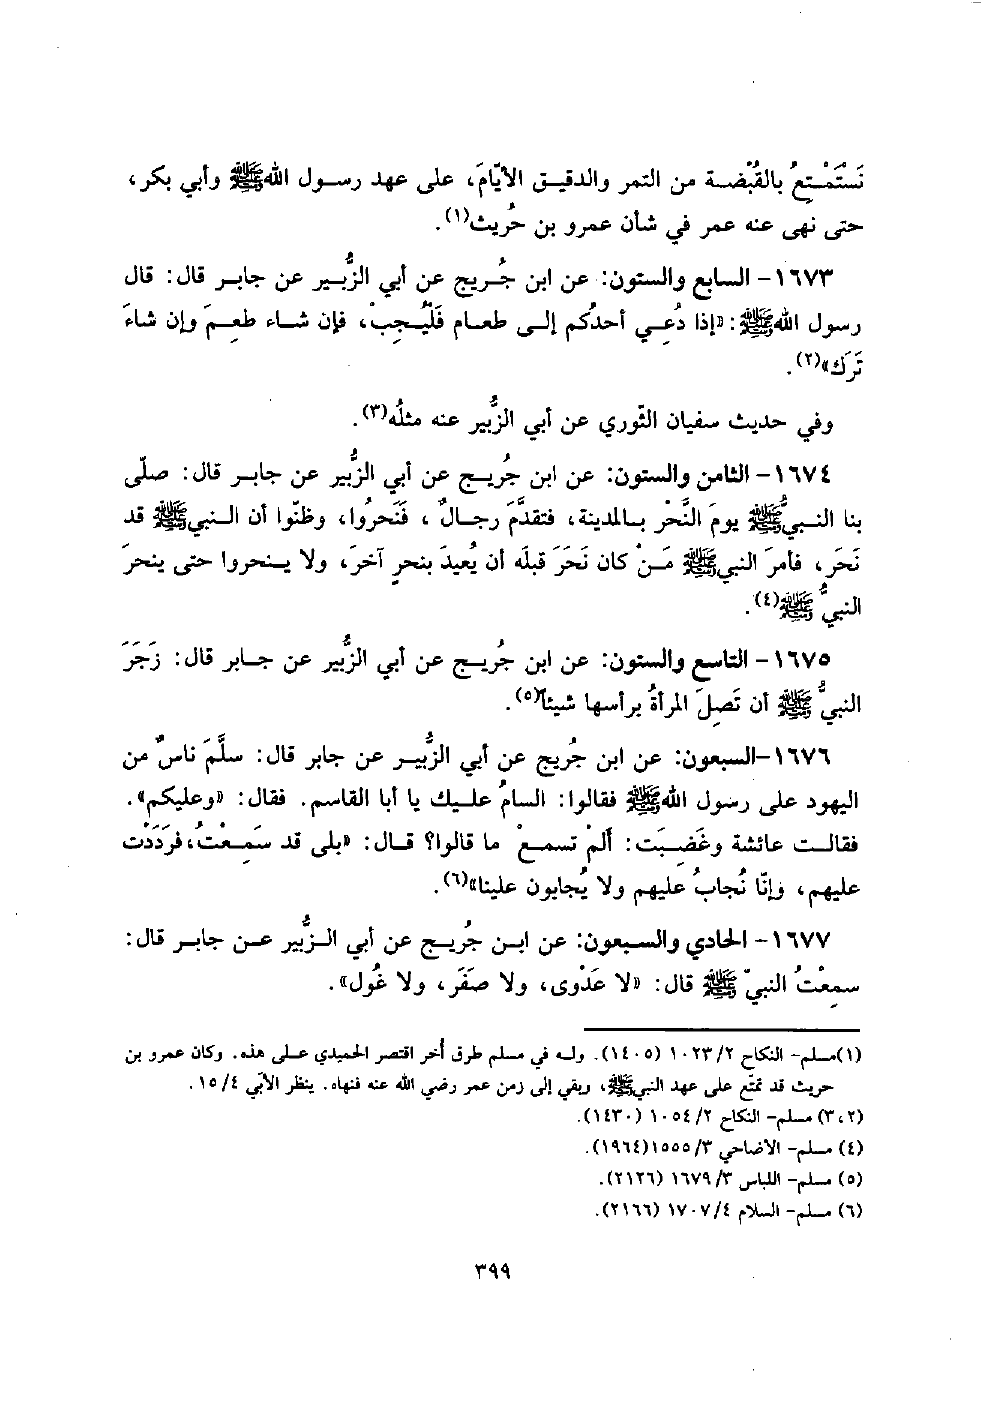 نَستَمْتِعُ بالقُبْضة من التمر والدقيق الأيّامَ، على عهد رسول اللهﷺ وأبي بكر،
حتى نهى عنه عمر في شأن عمرو بن حُريث(١).
١٦٧٣- السابع والستون: عن ابن جُريج عن أبي الزُّبير عن جابر قال: قال
رسول اللهﷺ: «إذا دُعي أحدكُم إلى طعام فَلْيُجِبْ، فإن شاء طعِمَ وإن شاءَ
تَرَك»(٢).
وفي حديث سفيان الثّوري عن أبي الزُّبير عنه مثلُه(٣).
١٦٧٤- الثامن والستون: عن ابن جُريج عن أبي الزُّبير عن جابر قال: صلّى
بنا النبيُّﷺ يومَ النَّحْر بالمدينة، فتقدَّمَ رجالٌ، فَنَحرُوا، وظنّوا أن النبيﷺ قد
نَحَر، فأمرَ النبيﷺ مَنْ كان نَحَرَ قبلَه أن يُعيدَ بنحرٍ آخرَ، ولا ينحروا حتى ينحرَ
النبيُّ ﷺ(٤).
١٦٧٥- التاسع والستون: عن ابن جُريج عن أبي الزُّبير عن جابر قال: زَجَرَ
النبيُّ ﷺ أن تَصِلَ المرأةُ برأسها شيئاً(٥).
١٦٧٦-السبعون: عن ابن جُريج عن أبي الزُّبير عن جابر قال: سلَّمَ ناسٌ من
اليهود على رسول اللهﷺ فقالوا: السامُ عليك يا أبا القاسم. فقال: «وعليكم».
فقالت عائشة وغَضِبَت: ألَمْ تسمعْ ما قالوا؟ قال: «بلى قد سَمِعْتُ، فرَدَدْت
عليهم، وإنّا نُجابُ عليهم ولا يُجابون علينا»(٦).
١٦٧٧- الحادي والسبعون: عن ابن جُريج عن أبي الزُّبير عن جابر قال:
سمِعْتُ النبيّ ﷺ قال: «لا عَدْوى، ولا صفَر، ولا غُول».
(١)مسلم- النكاح ١٠٢٣/٢ (١٤٠٥). وله في مسلم طرق أُخر اقتصر الحميدي على هذه. وكان عمرو بن
حريث قد تمتّع على عهد النبيﷺ، وبقي إلى زمن عمر رضي الله عنه فنهاه. ينظر الأبّي ١٥/٤.
(٣،٢) مسلم- النكاح ١٠٥٤/٢ (١٤٣٠).
(٤) مسلم- الأضاحي ١٥٥٥/٣(١٩٦٤).
(٥) مسلم- اللباس ١٦٧٩/٣ (٢١٢٦).
(٦) مسلم- السلام ١٧٠٧/٤ (٢١٦٦).
٣٩٩